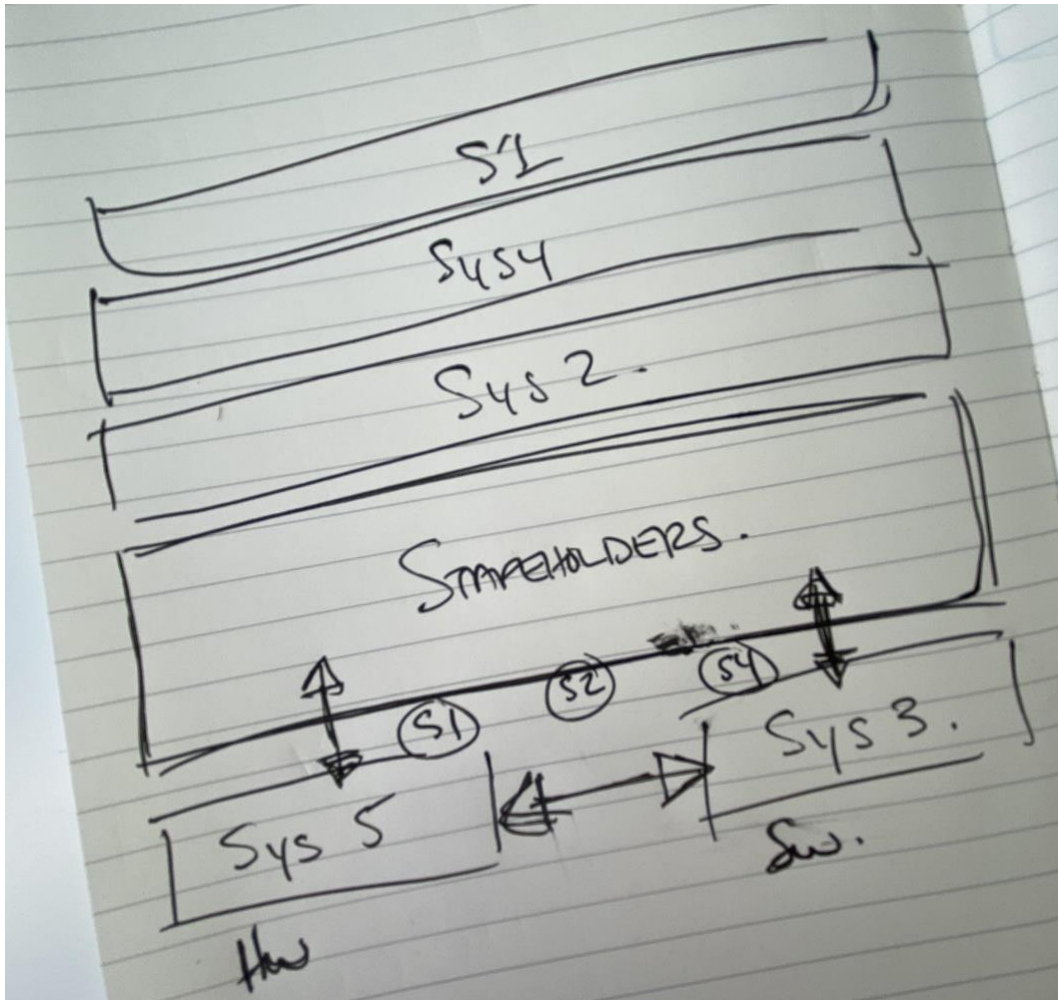 S1
Sys4
Sys 2.
STAKEHOLDERS.
S1 S2 S4
Sys 5 Sys 3.
Hw Sw.